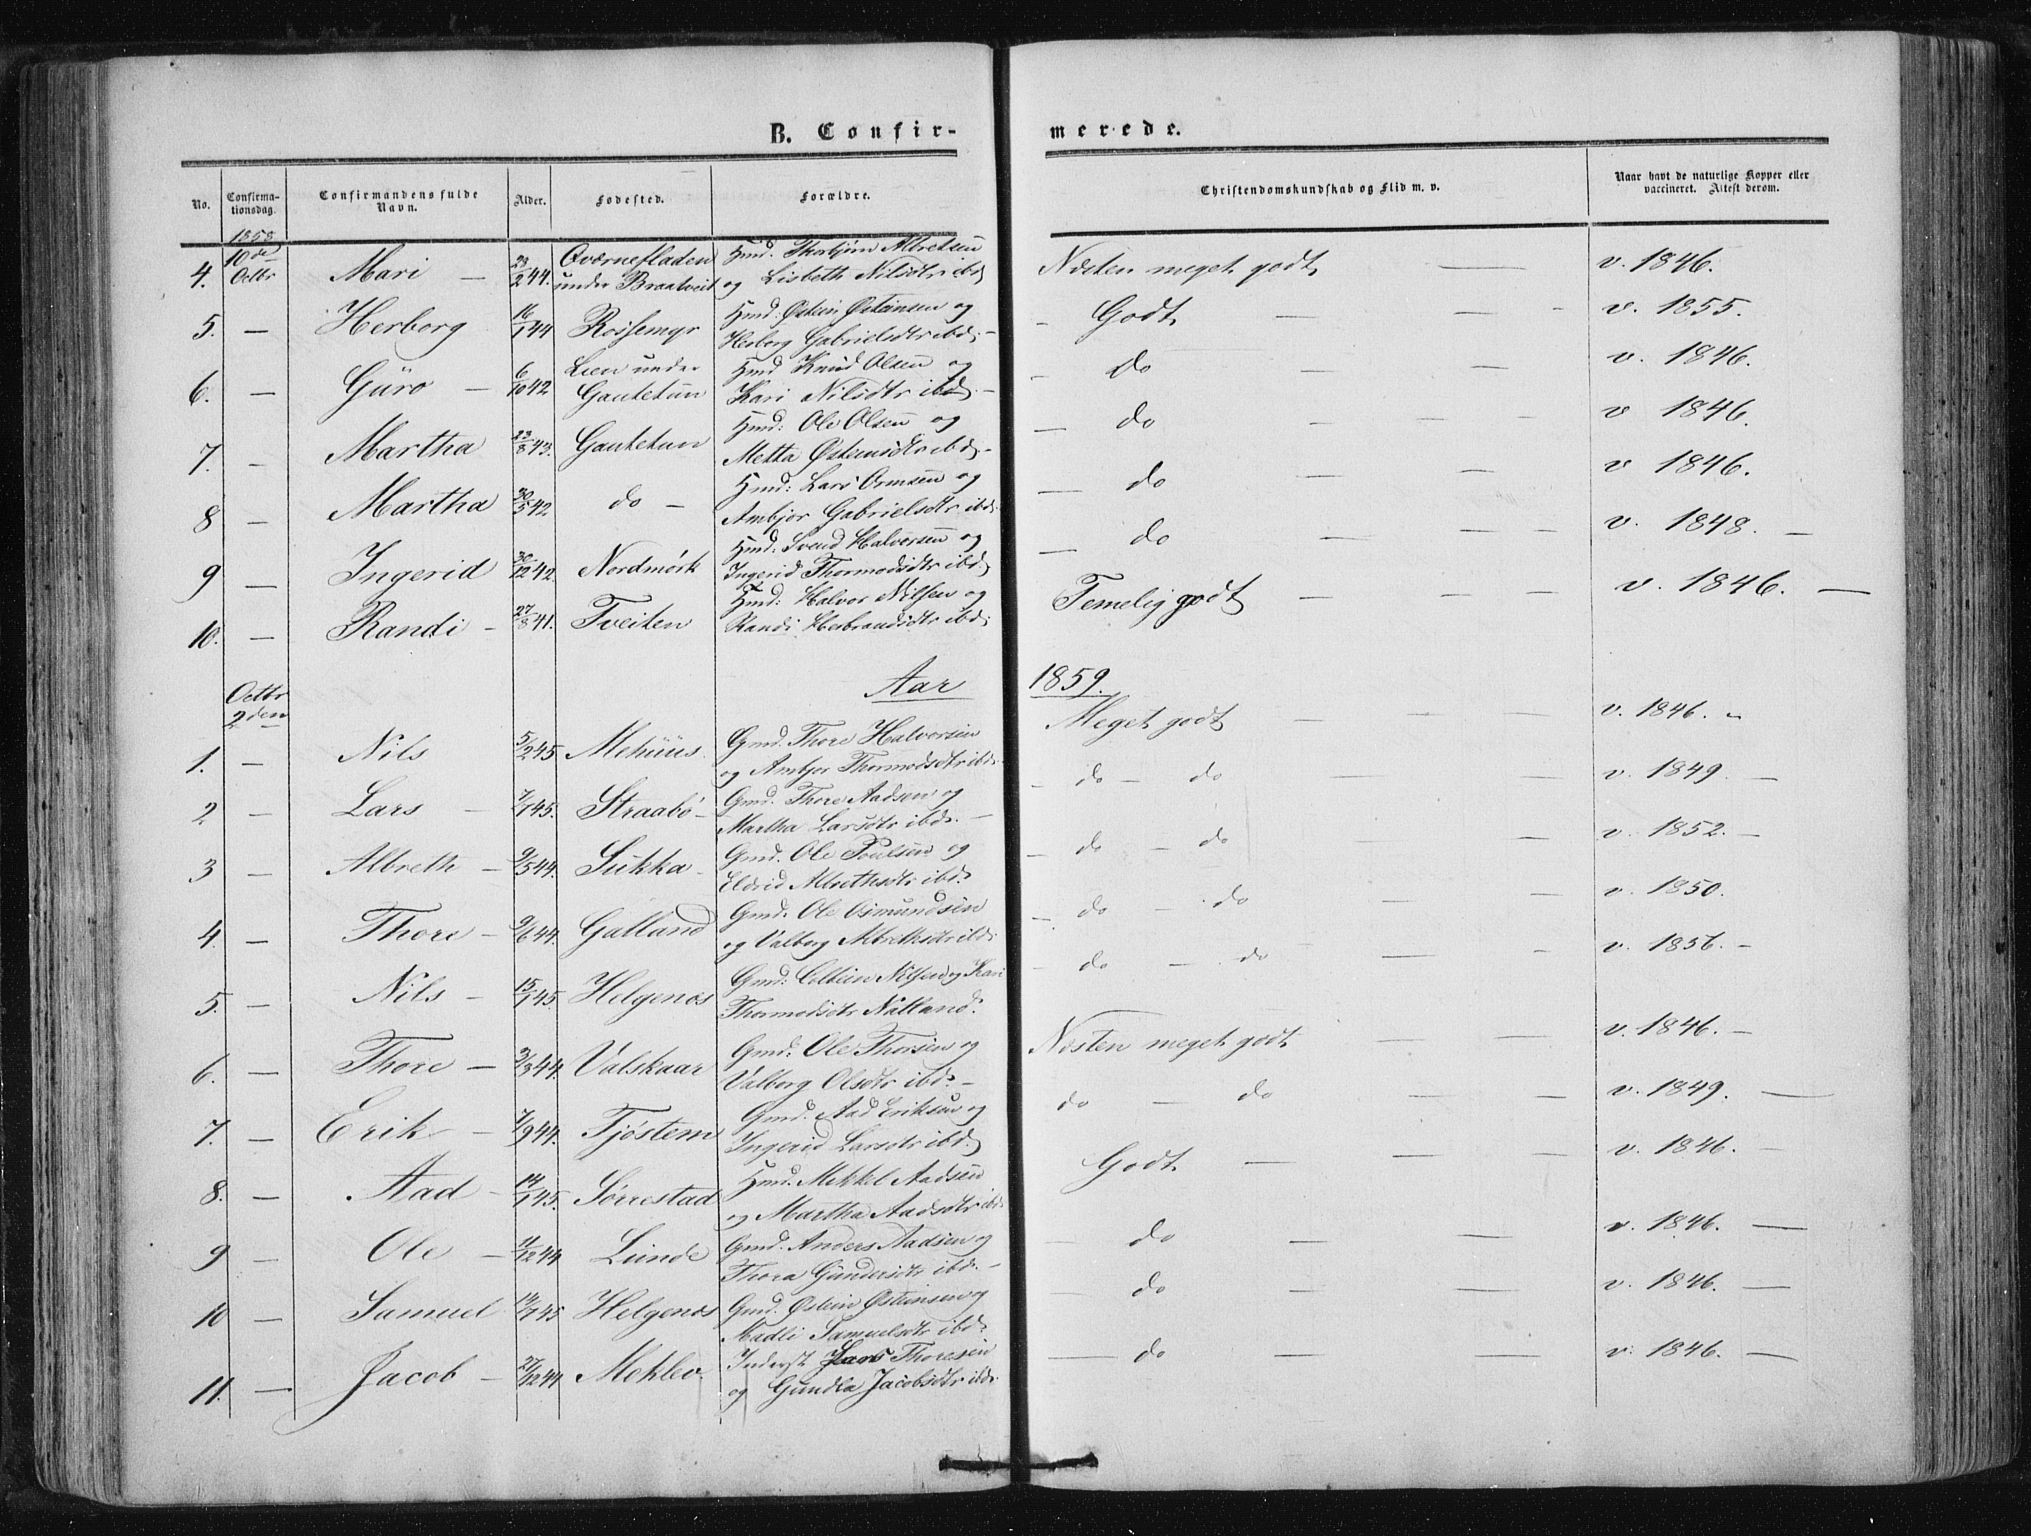 B. Confir-
merede.
No.
Confirma-
tionsdag.
Confirmandens fulde
Navn.
Alder.
Fødested.
Forældre.
Christendomskundskab og Flid m. v.
Naar havt de naturlige Kopper eller
vaccineret. Attest derom.
1858
4. 10de Octbr Mari — 23/2 44. Qværnefladen under Braatveit Hmd. Thorbjørn Albretsen og Lisbeth Nilsdtr ibd. Næsten meget godt — — v. 1846.
5. — Herborg 16/1 44 Rossemyr Hmd: Østein Østensen og Herborg Gabrielsdtr ibd. — Godt — — v. 1855.
6. — Guro — 6/10 42 Lien under Gautetun Hmd Knud Olsen og Kari Nilsdtr ibd. — do — — v. 1846.
7. — Martha 23/8 43. Gautetun Hmd: Ole Olsen og Metta Østensdtr ibd. — do — — v 1846.
8 — Martha 30/5 42 do — Hmd: Lars Ormsen og Ambjør Gabrielsdtr ibd. — do — — v 1846.
9 — Ingerid 30/12 42. Nordmørk Hmd: Svend Halvorsen og Ingerid Thormodsdtr ibd. — do — — — v. 1848. —
10. — Randi — 27/8 41. Tveiten Hmd: Halvor Nilsen og Randi Herbrandsdtr ibd. Temelig godt — — — v. 1846. —
Aar 1859.
Octbr
2den
1. — Nils 5/2 45 Mehuus. Gmd. Thore Halvorsen og Ambjør Thormodsdtr ibd. Meget godt — — — v. 1846. —
2 — Lars — 7/1 45. Straabø — Gmd. Thore Aadsen og Martha Larsdtr ibd. — do — do — — v. 1849. —
3 — Albreth — 9/5 44. Sukka — Gmd. Ole Poulsen og Eldrid Albrethsdtr ibd. — do — do — — v. 1852. —
4. — Thore — 9/6 44. Galland Gmd. Ole Osmundsen og Valborg Albrethsdtr ibd. — do — do — — v. 1850.
5. — Nils — 15/1 45. Helgenæs Gmd: Nilsen og Kari Thormodsdtr Nalland. — do — do — — v. 1856. —
6. — Thore — 3/3 44. Valskaar Gmd: Ole Thorsen og Valborg Olsdtr ibd. — Næsten meget godt — — — v. 1846. —
7. — Erik — 7/9 44. Tjøstem Gmd. Aad Eriksen og Ingerid Larsdtr ibd. do — do — — — v. 1849. —
8. — Aad — 14/1 45. Sørrestad Hmd. Mekkel Aadsen og Martha Aadsdtr ibd. Godt — — — v. 1846. —
9 — Ole — 11/12 44 Lunde Gmd. Anders Aadsen og Thora Gundersdtr ibd. — — do — — v. 1846. —
10 — Samuel 14/1 45 Helgenæs Gmd. Østein Østensen og Madli Samuelsdtr ibd. — do — — v. 1846. —
11. — Jacob — 27/12 44 Mehlev. Inderst Lars Thoresen og Gundla Jacobsdtr ibd. — do — — v. 1846. —